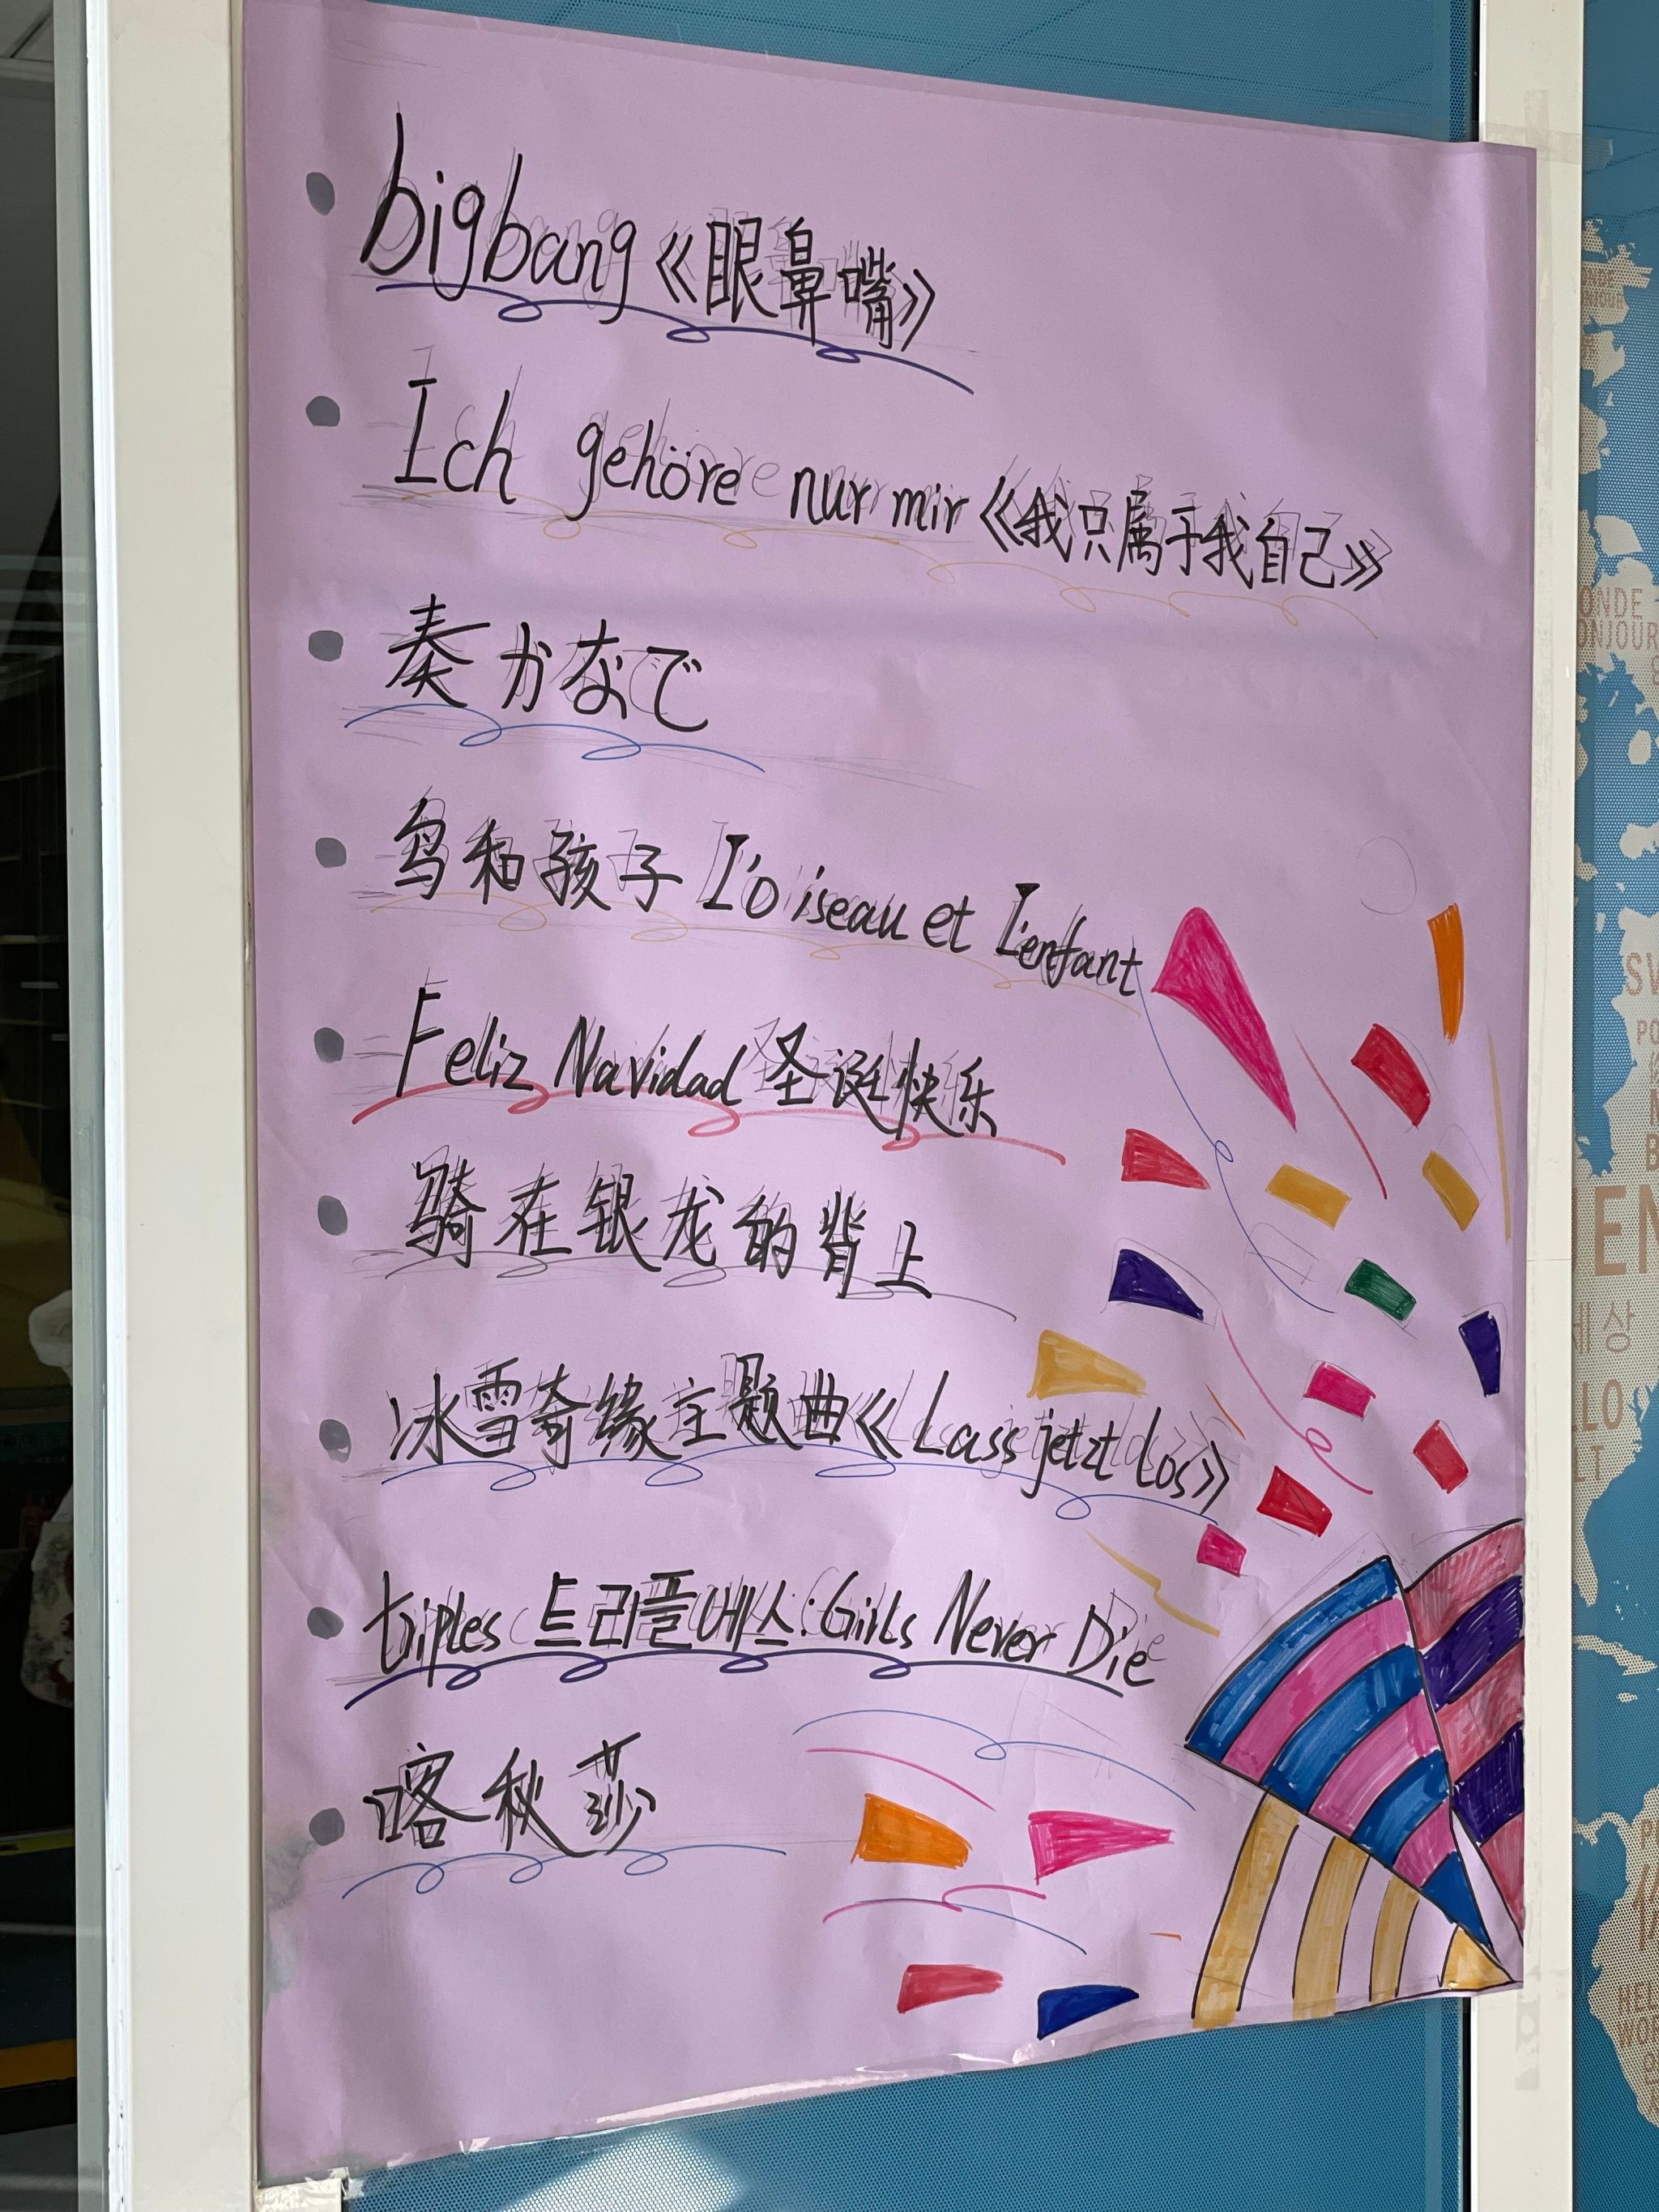 bigbang《眼鼻嘴》
Ich gehöre nur mir《我只属于我自己》
奏かなで
鸟和孩子 L'oiseau et L'enfant
Feliz Navidad 圣诞快乐
骑在银龙的背上
冰雪奇缘主题曲《Lass jetzt los》
triples 트리플에스:Girls Never Die
喀秋莎
ONDE
ONJOUR
세상